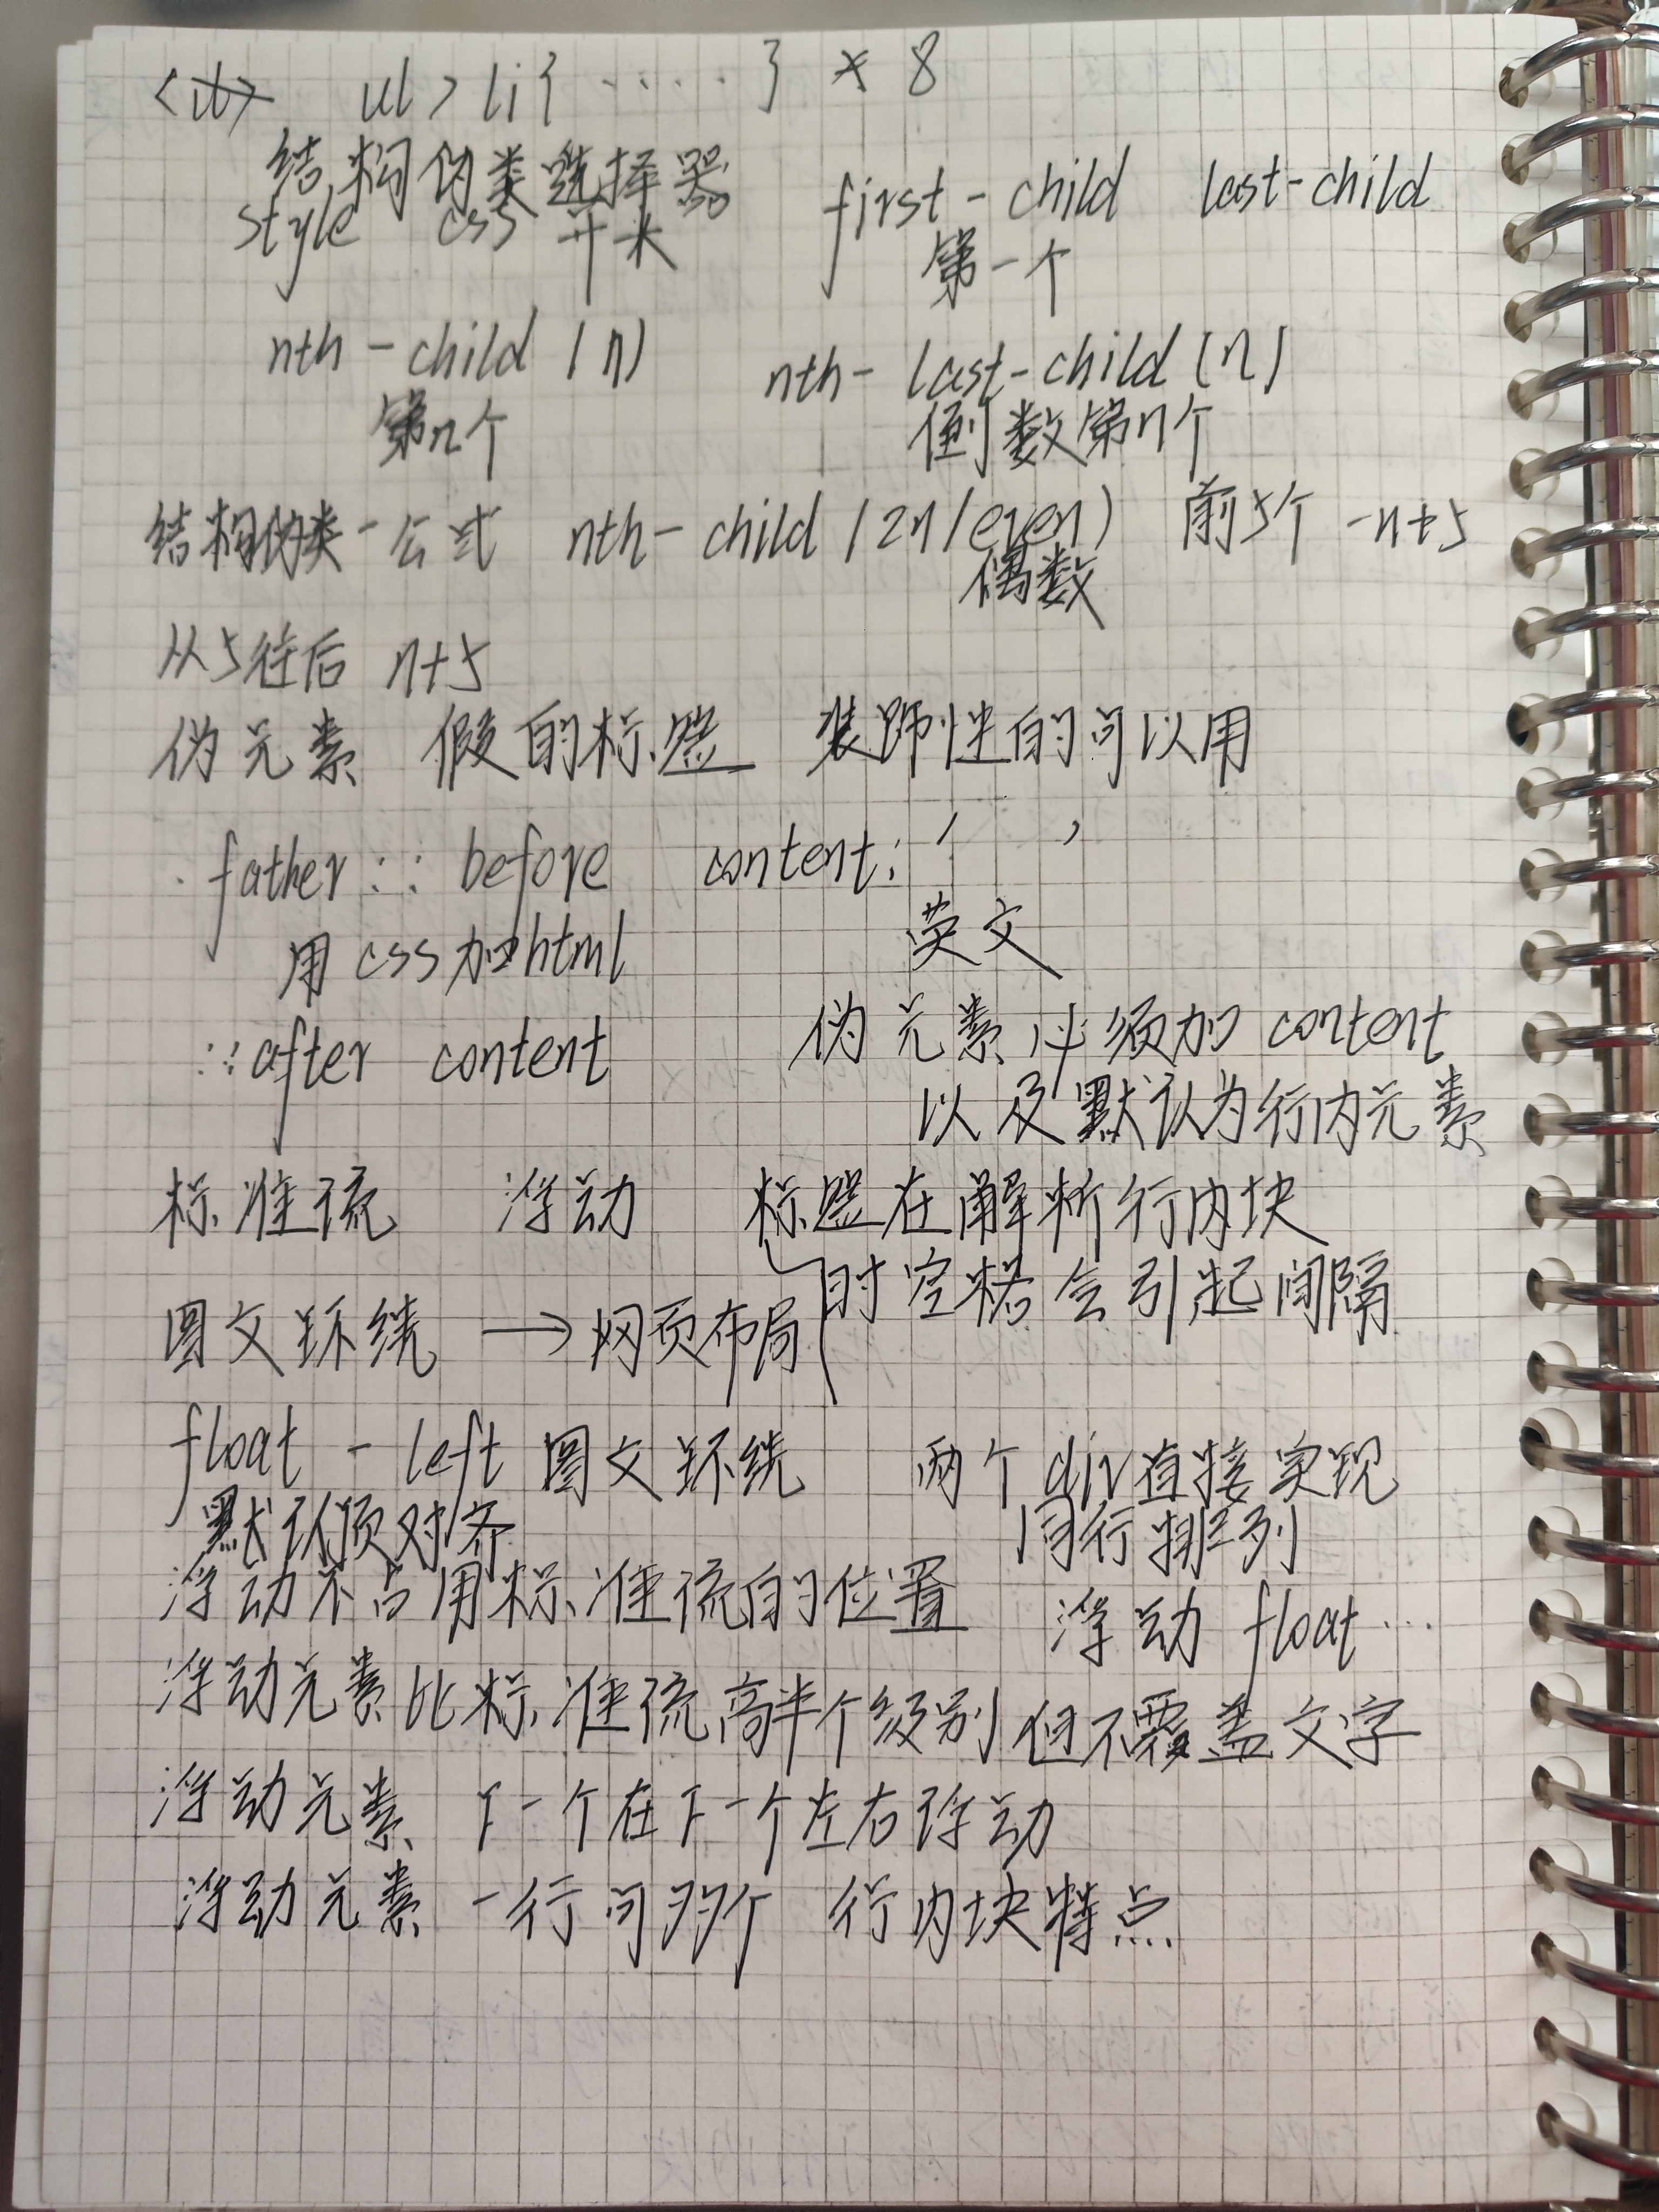 ul>li{.....}*8
结构伪类选择器 first-child last-child
style css 开头 第一个
nth-child(n) nth-last-child(n)
第n个 倒数第n个
结构伪类-公式 nth-child(2n/even) 前5个 -n+5
偶数
从5往后 n+5
伪元素 假的标签 装饰性的可以用
.father::before content:' '
用css加html 英文
::after content 伪元素必须加content
以及默认为行内元素
标准流 浮动 标签在解析行内块
时空格会引起间隔
图文环绕 → 网页布局
float - left 图文环绕 两个div直接实现
默认顶对齐 同行排列
浮动不占用标准流的位置 浮动 float...
浮动元素比标准流高半个级别 但不覆盖文字
浮动元素 下一个在下一个左右浮动
浮动元素 一行可多个 行内块特点